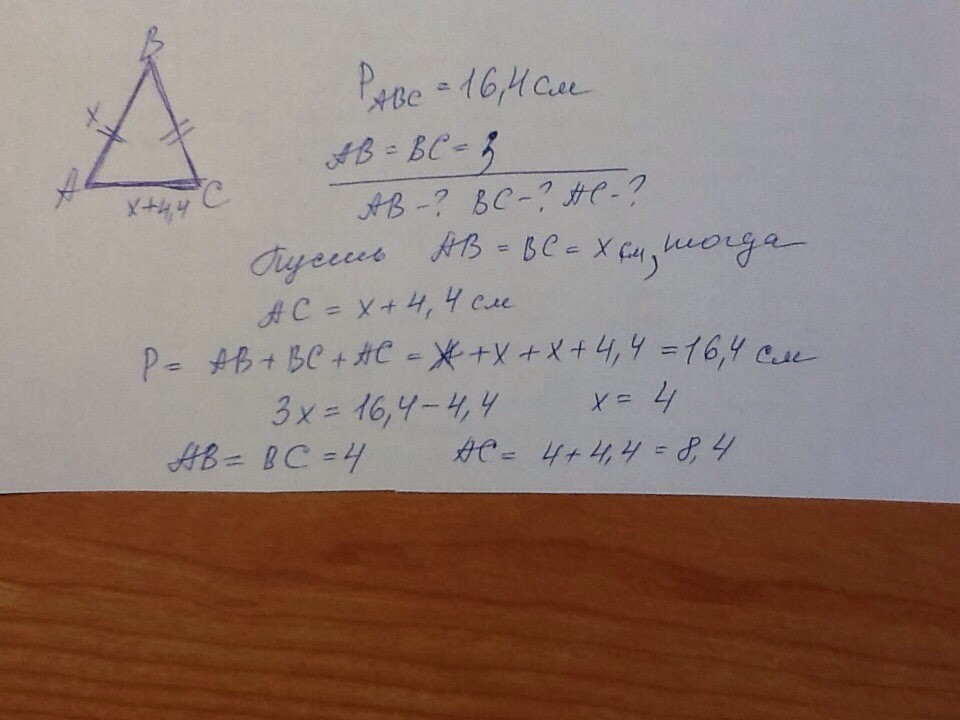 B
x
A
x+4,4
C
P ABC = 16,4 см
AB = BC = 3
AB-? BC-? AC-?
Пусть AB = BC = x см, тогда
AC = x + 4,4 см
P = AB + BC + AC = x + x + x + 4,4 = 16,4 см
3x = 16,4 - 4,4 x = 4
AB = BC = 4 AC = 4 + 4,4 = 8,4